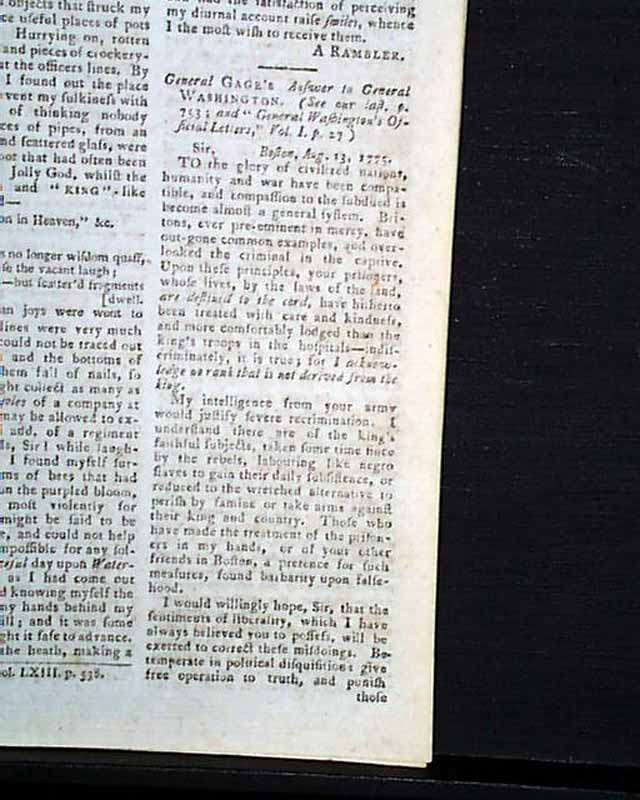 ojects that struck my
ce useful places of pots
Hurrying on, rotten
and pieces of crockery-
at the officers lines. By
I found out the place
vent my sulkiness with
of thinking nobody
ces of pipes, from an
nd scattered glass, were
oot that had often been
Jolly God, whilst the
and "KING"-like
on in Heaven," &c.
s no longer wisdom quaff,
se the vacant laugh;
—but scatter'd fragments
[dwell.
an joys were wont to
lines were very much
could not be traced out
and the bottoms of
hem fall of nails, so
ght collect as many as
soles of a company at
may be allowed to ex-
add, of a regiment
Sir! while laugh-
I found myself sur-
ms of bees that had
un the purpled bloom,
most violently for
might be said to be
e, and could not help
mpossible for any sol-
day upon Water-
as I had come out
d knowing myself the
my hands behind my
ill; and it was some
ght it safe to advance.
the heath, making a
ol. LXIII. p. 538.
had the satisfaction of perceiving
my diurnal account raise smiles, whence
I the most wish to receive them.
A RAMBLER.
General GAGE's Answer to General
WASHINGTON. (See our last, p.
753; and "General Washington's Of-
ficial Letters," Vol. I. p. 27)
Sir, Boston, Aug. 13, 1775.
TO the glory of civilized nations,
humanity and war have been compa-
tible, and compassion to the subdued is
become almost a general system. Bri-
tons, ever pre-eminent in mercy, have
out-gone common examples, and over-
looked the criminal in the captive.
Upon these principles, your prisoners,
whose lives, by the laws of the land,
are destined to the cord, have hitherto
been treated with care and kindness,
and more comfortably lodged than the
king's troops in the hospitals—indis-
criminately, it is true; for I acknow-
ledge no rank that is not derived from the
king.
My intelligence from your army
would justify severe recrimination. I
understand there are of the king's
faithful subjects, taken some time since
by the rebels, labouring like negro
slaves to gain their daily subsistence, or
reduced to the wretched alternative to
perish by famine or take arms against
their king and country. Those who
have made the treatment of the prison-
ers in my hands, or of your other
friends in Boston, a pretence for such
measures, found barbarity upon false-
hood.
I would willingly hope, Sir, that the
sentiments of liberality, which I have
always believed you to possess, will be
exerted to correct these misdoings. Be
temperate in political disquisition; give
free operation to truth, and punish
those